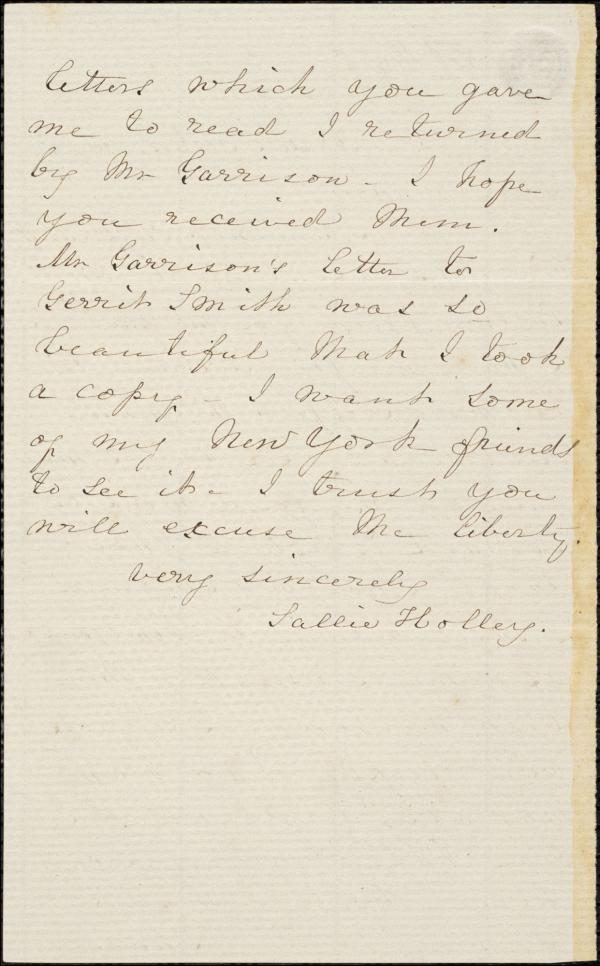 letters which you gave
me to read I returned
by Mr Garrison - I hope
you received them.
Mr Garrison's letter to
Gerrit Smith was so
beautiful that I took
a copy - I want some
of my New York friends
to see it - I trust you
will excuse the liberty.
very sincerely
Sallie Holley.